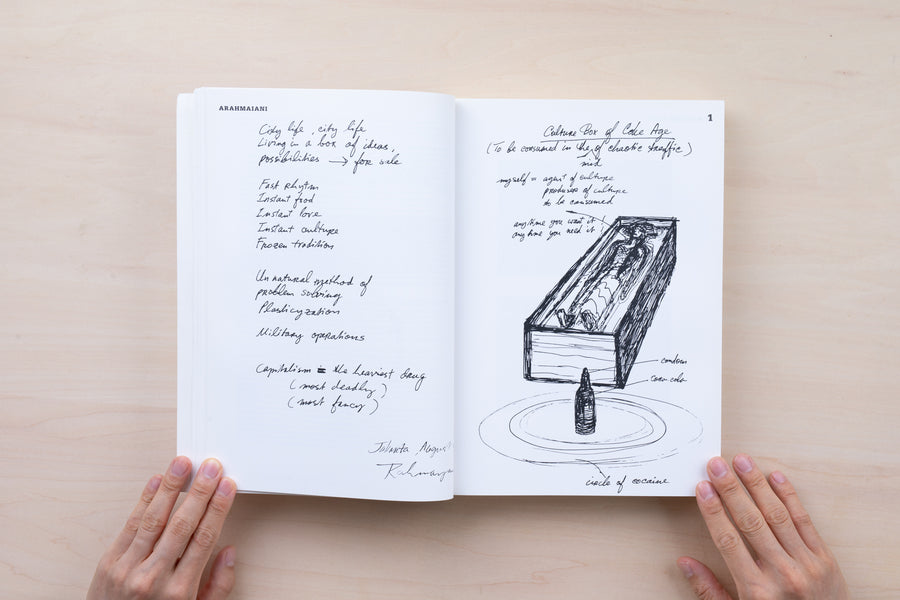 ARAHMAIANI
City life, city life
Living in a box of ideas,
possibilities → for sale
Fast rhytm
Instant food
Instant love
Instant culture
Frozen tradition
Un natural method of
problem solving
Plasticyzation
Military operations
Capitalism = the heaviest drug
(most deadly)
(most fancy)
Jakarta, August
1
Culture Box of Coke Age
(To be consumed in the mid of chaotic traffic)
myself = agent of culture
producer of culture
to be consumed
anytime you want it !
anytime you need it !
condom
coca cola
circle of cocaine